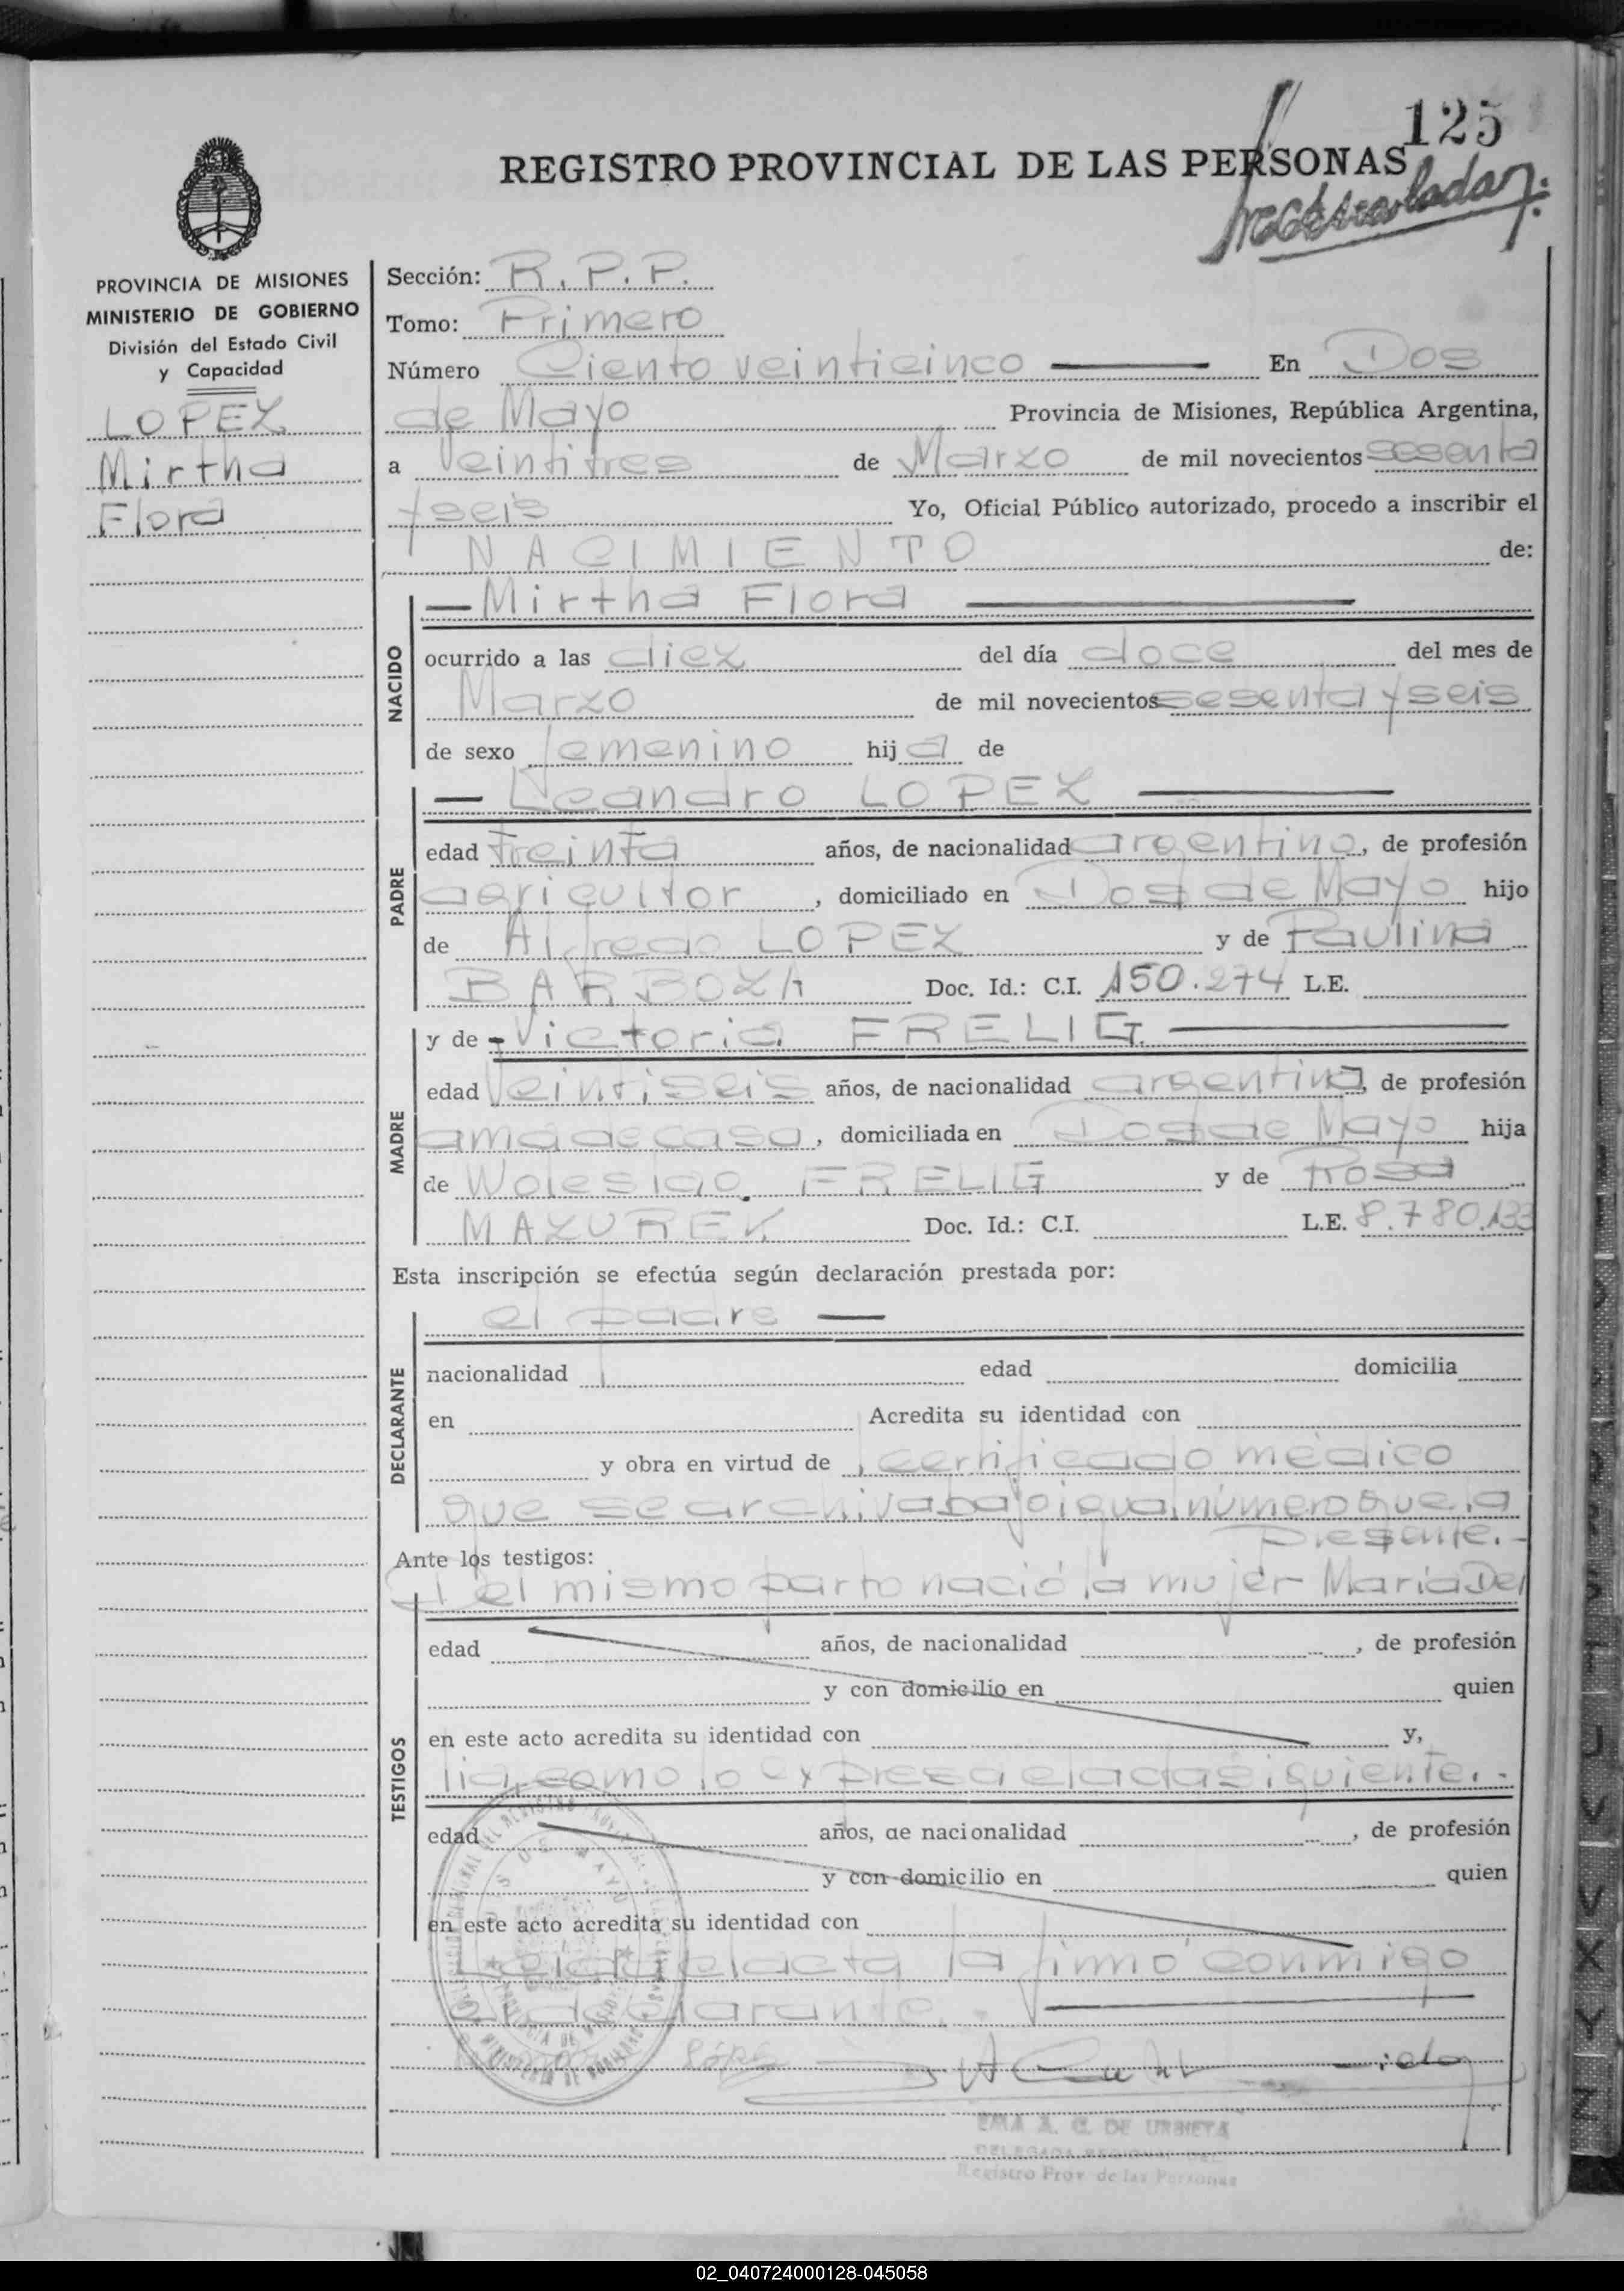 125
REGISTRO PROVINCIAL DE LAS PERSONAS
PROVINCIA DE MISIONES
MINISTERIO DE GOBIERNO
División del Estado Civil
y Capacidad
LOPEZ
Mirtha
Flora
Sección: R.P.P.
Tomo: Primero
Número Ciento veinticinco En Dos
de Mayo Provincia de Misiones, República Argentina,
a veintitres de Marzo de mil novecientos sesenta
y seis Yo, Oficial Público autorizado, procedo a inscribir el
NACIMIENTO de:
NACIDO
Mirtha Flora
ocurrido a las diez del día doce del mes de
Marzo de mil novecientos sesenta y seis
de sexo femenino hija de
PADRE
Leandro LOPEZ
edad treinta años, de nacionalidad argentino, de profesión
agricultor, domiciliado en Dos de Mayo hijo
de Alfredo LOPEZ y de Paulina
BARBOZA Doc. Id.: C.I. 150.274 L.E.
MADRE
y de Victoria FRELIG
edad veintiseis años, de nacionalidad argentina, de profesión
ama de casa, domiciliada en Dos de Mayo hija
de Woleslao FRELIG y de Rosa
MAZUREK Doc. Id.: C.I. L.E. 8.780.133
Esta inscripción se efectúa según declaración prestada por:
DECLARANTE
el padre
nacionalidad edad domicilia
en Acredita su identidad con
y obra en virtud de certificado médico
que se archiva bajo igual número que la
presente.-
Ante los testigos:
Del mismo parto nació la mujer María De
TESTIGOS
edad años, de nacionalidad , de profesión
y con domicilio en quien
en este acto acredita su identidad con y,
lia, como lo expresa el acta siguiente.-
edad años, de nacionalidad , de profesión
y con domicilio en quien
en este acto acredita su identidad con
Leida el acta la firmó conmigo
el declarante.-
López
EMA A. C. DE URBIETA
DELEGADA REGIONAL DEL
Registro Prov. de las Personas
02_040724000128-045058